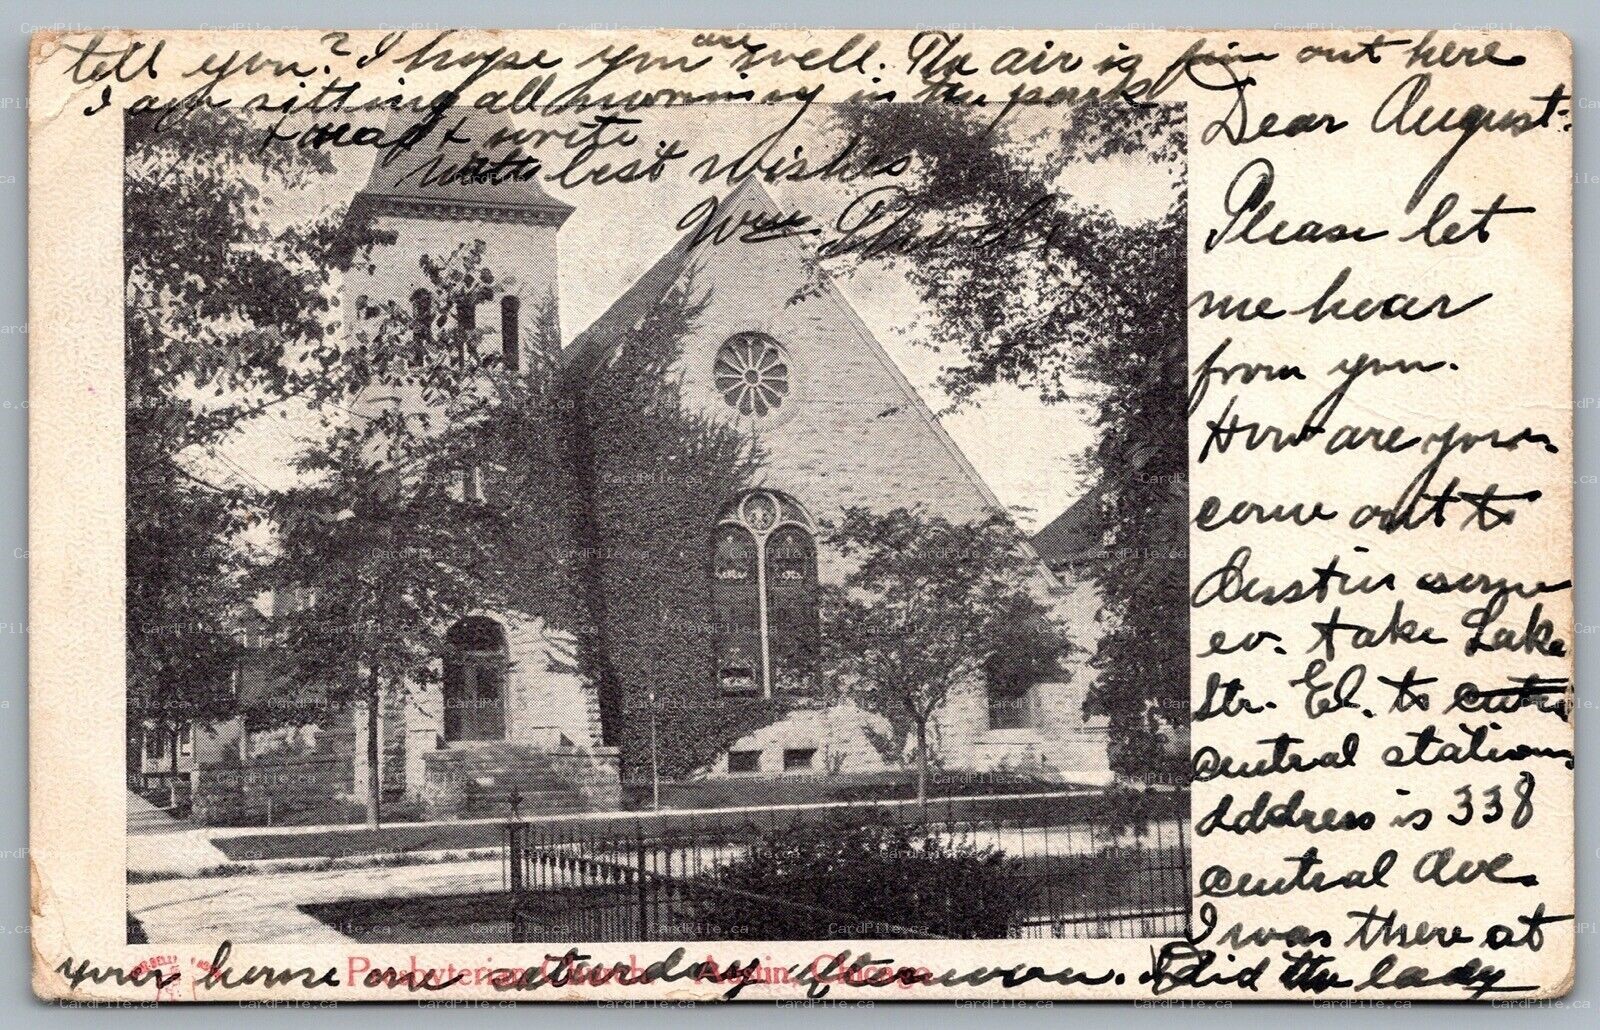 Dear August:
Please let
me hear
from you.
How are you
come out to
Austin some
ev. take Lake
Str. El. to
central station
address is 338
central Ave.
I was there at
your house one saturday afternoon. Did the lady
tell you? I hope you are well. The air is fine out here
I am sitting all morning in the park
& read & write.
with best wishes
Wm.
Presbyterian Church. Austin, Chicago